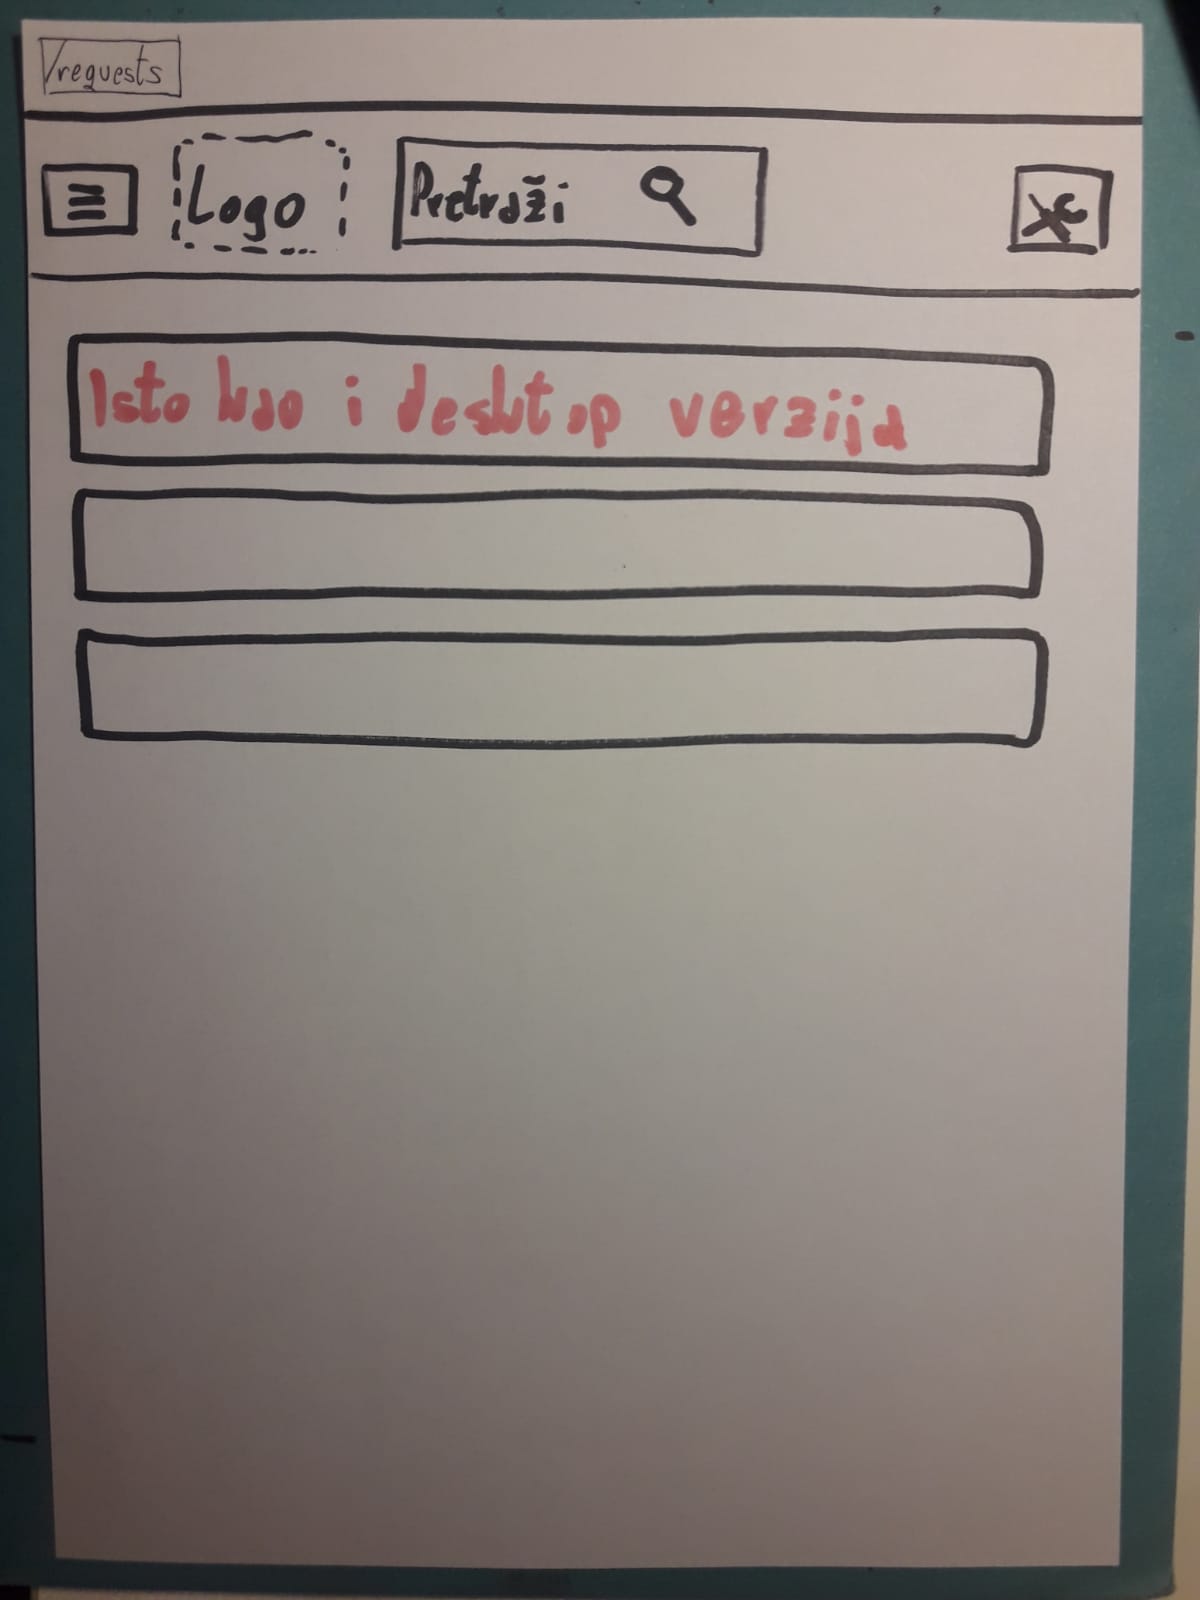 /requests
Logo
Pretraži
Isto kao i desktop verzija